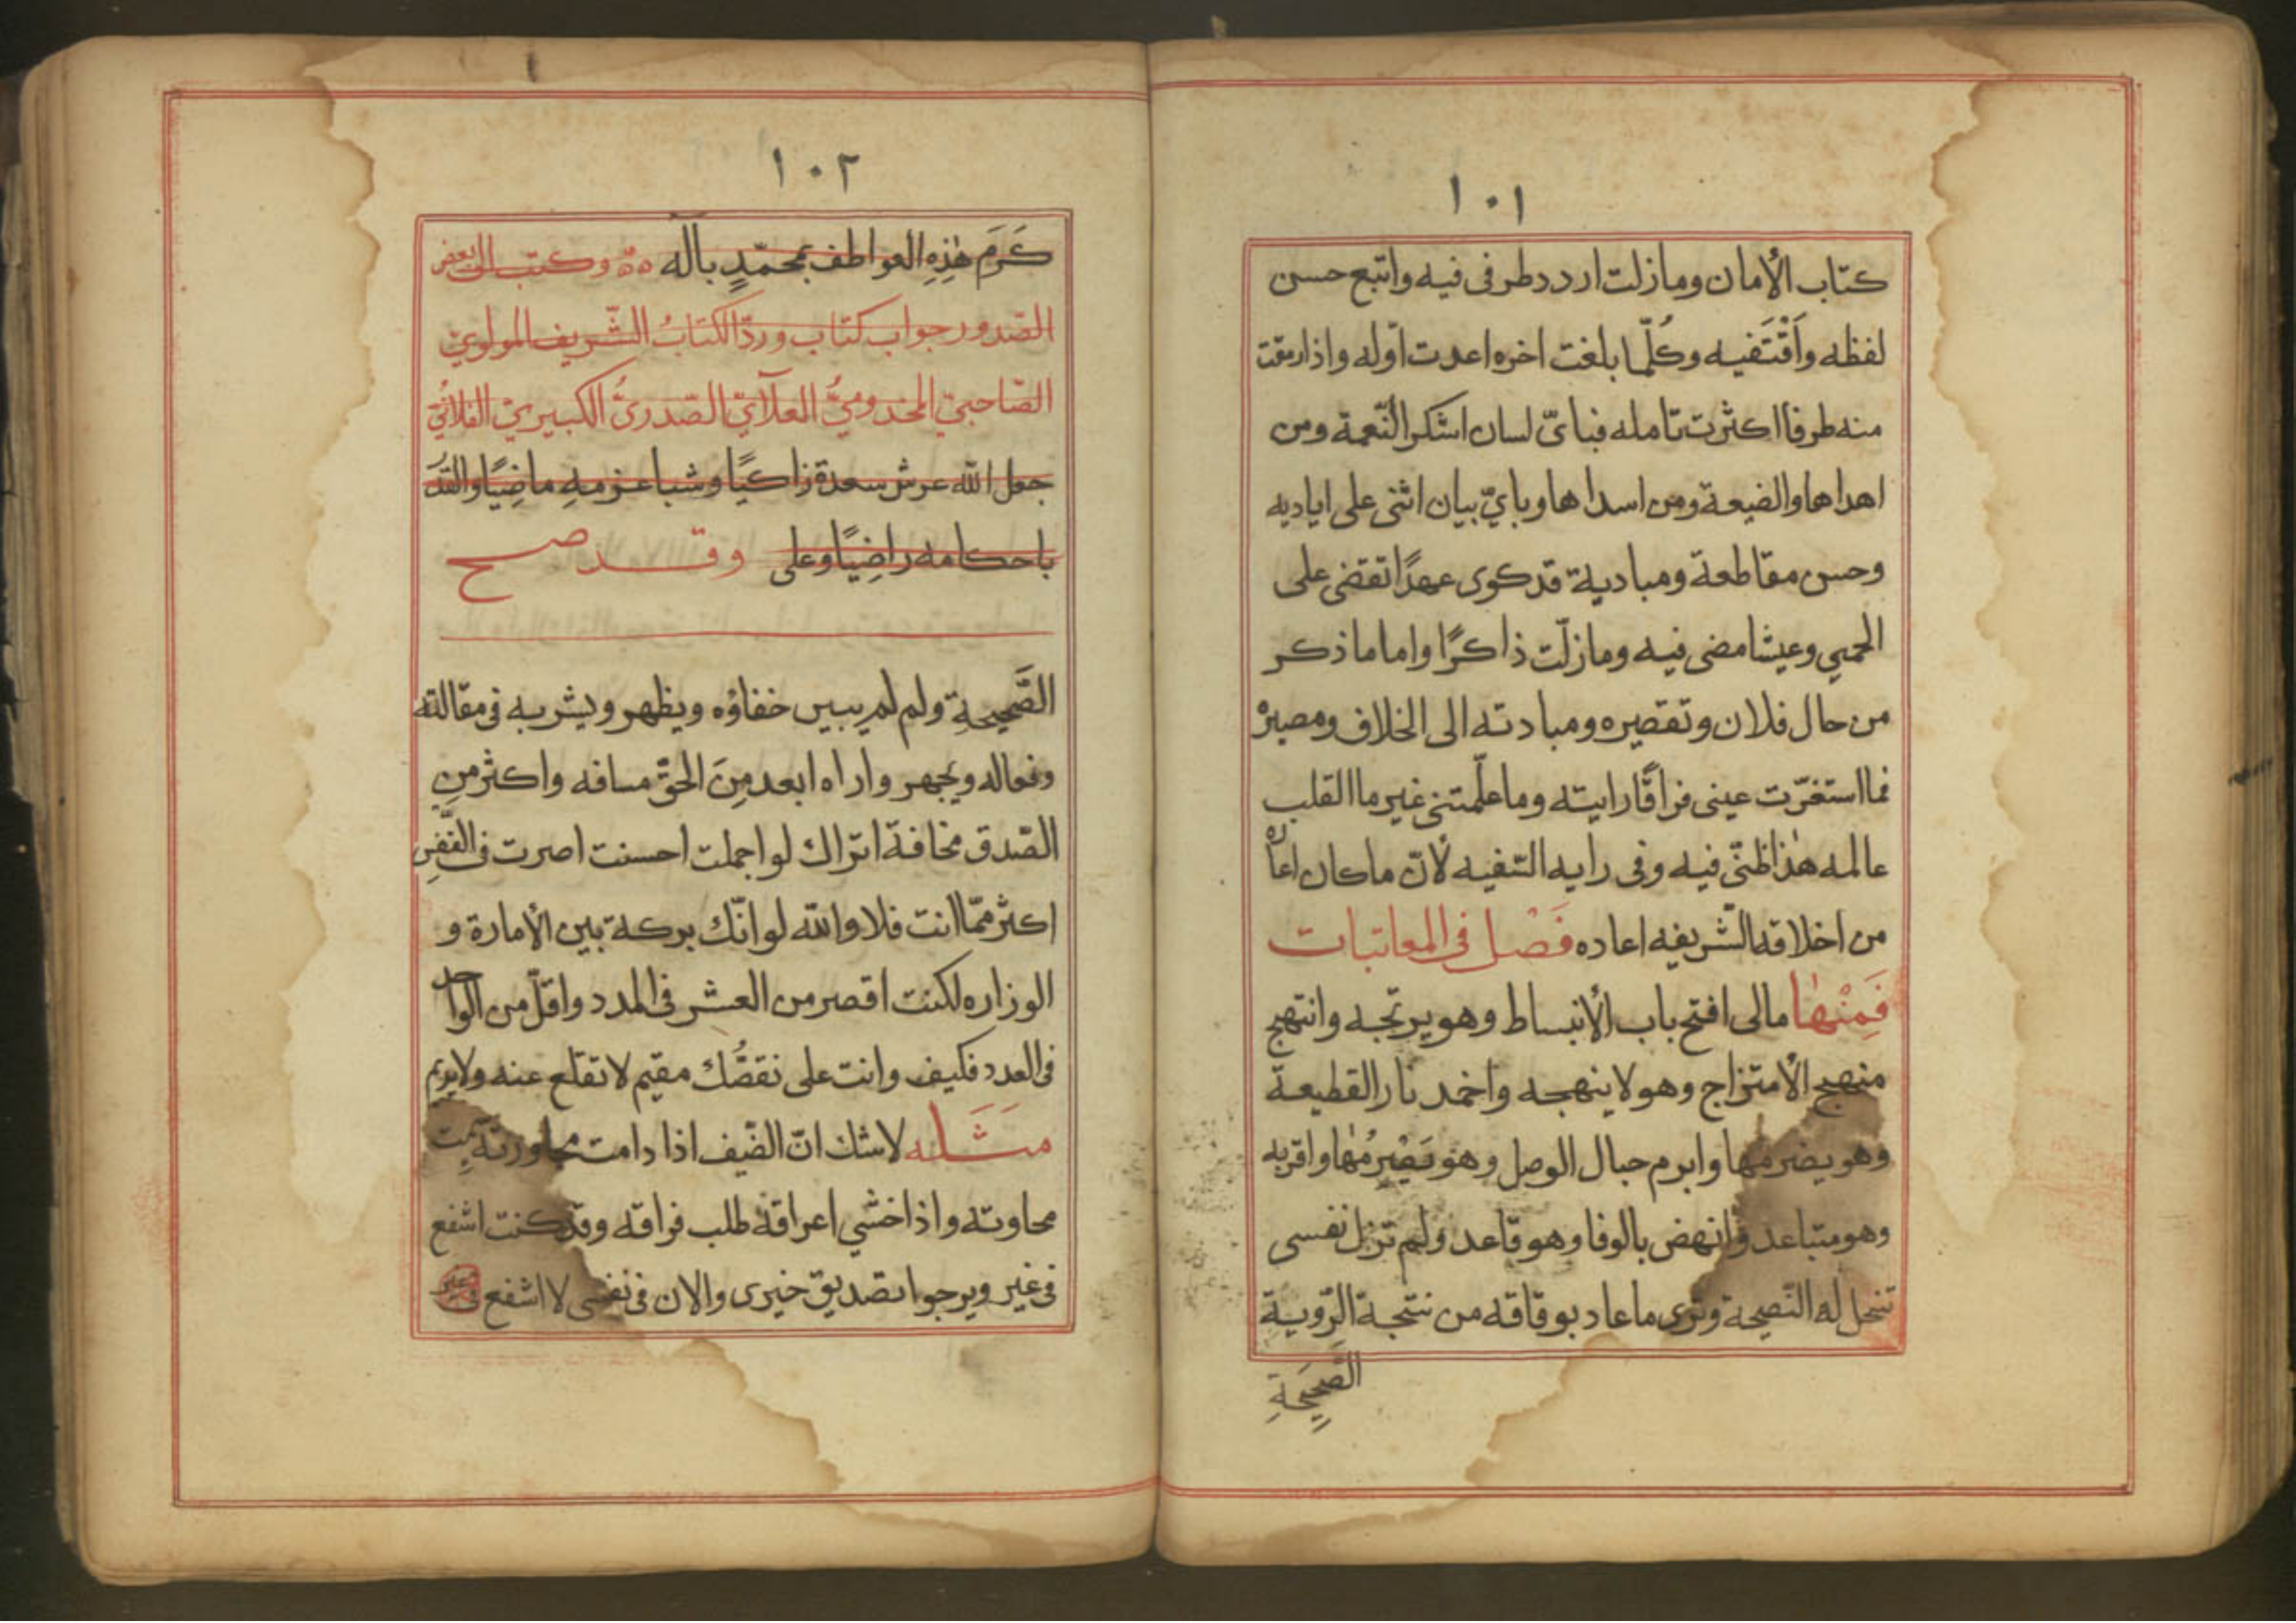 ١٠١
كتاب الأمان وما زلت اردد طرفى فيه واتبع حسن
لفظه وَاَقْتَفيه وكُلّما بلغت اخره اعدت اوّله واذا رمقت
منه طرفا اكثرت تامله فباىّ لسان اشكر النّعمة ومن
اهداها والضيعة ومن اسداها وباىّ بيان اثنى على اياديه
وحسن مقاطعة ومباديه قد كوى عهدًا تقضى على
الحمي وعيشا مضى فيه وما زلت ذاكرًا واما ما ذكر
من حال فلان وتقصيره ومبادته الى الخلاف ومصيره
فما استغرّت عينى فراقًا رايته وما علّمتنى غير ما القلب
عالمه هٰذا ظنّى فيه وفى رايه التنفيه لأنّ ما كان اعاره
من اخلاقه الشّريفه اعاده فَصْل فى المعاتبات
فَمِنْهٰا مالى افتح باب الأنبساط وهو يرتجه وانتهج
منهج الأمتزاج وهو لا ينهجه واخمد نار القطيعة
وهو يضرمها وابرم حبال الوصل وهو يَصْرِمُهٰا واقربه
وهو متباعد وانهض بالوفا وهو قاعد ولم تزل نفسى
تنحل له النّصيحة وترى ما عاد بوفاقه من نتيجة الرّوية
الصَّحِيحَةِ
١٠٢
كَرَمَ هٰذِهِ العواطف بمحمّدٍ بآله وكتب الى بعض
الصّدور جواب كتاب وردّ الكتابُ الشّريف المولوىّ
الصّاحبىّ المخدومىُّ العلآئىّ الصّدرىُّ الكبيرىّ الفلانىُّ
جعل الله عرش سعدة زاكيًا وشبا عزمهِ ماضِيًا والقدَرَ
باحكامه راضِيًا وعلى وقد صح
الصَّحيحةِ ولم لم يبين خفاؤه ويظهر ويشر به فى مقالته
وفعاله ويجهر واراه ابعد مِنَ الحقّ مسافه واكثر مِنِ
الصّدق مخافة اتراك لو اجملت احسنت اصرت فى
اكثر ممّا انت فلا والله لو انّك بركة بين الأمارة و
الوزاره لكنت اقصر من العشر فى المدد واقلّ من الواحد
فى العدد فكيف وانت على نقصُك مقيم لا تقلع عنه ولا يريم
مَثَله لا شك انّ الضّيف اذا دامت مجاورته
محاوته واذا خشي اعراقه طلب فراقه وقد كنت اشفع
فى غير ويرجوا تصديق خيرى والان فى نفسى لا اشفع فى